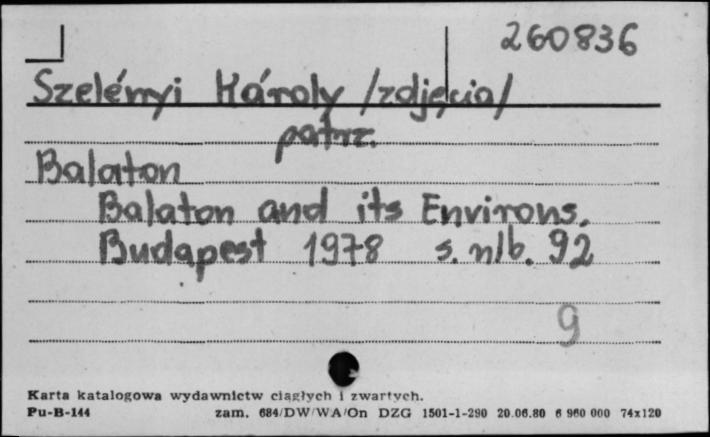 260836
Szelényi Károly /zdjęcia/
patrz.
Balaton
Balaton and its Environs.
Budapest 1978 s. nlb. 92
9
Karta katalogowa wydawnictw ciągłych i zwartych.
Pu-B-144 zam. 684/DW/WA/On DZG 1501-1-290 20.06.80 6 960 000 74x120